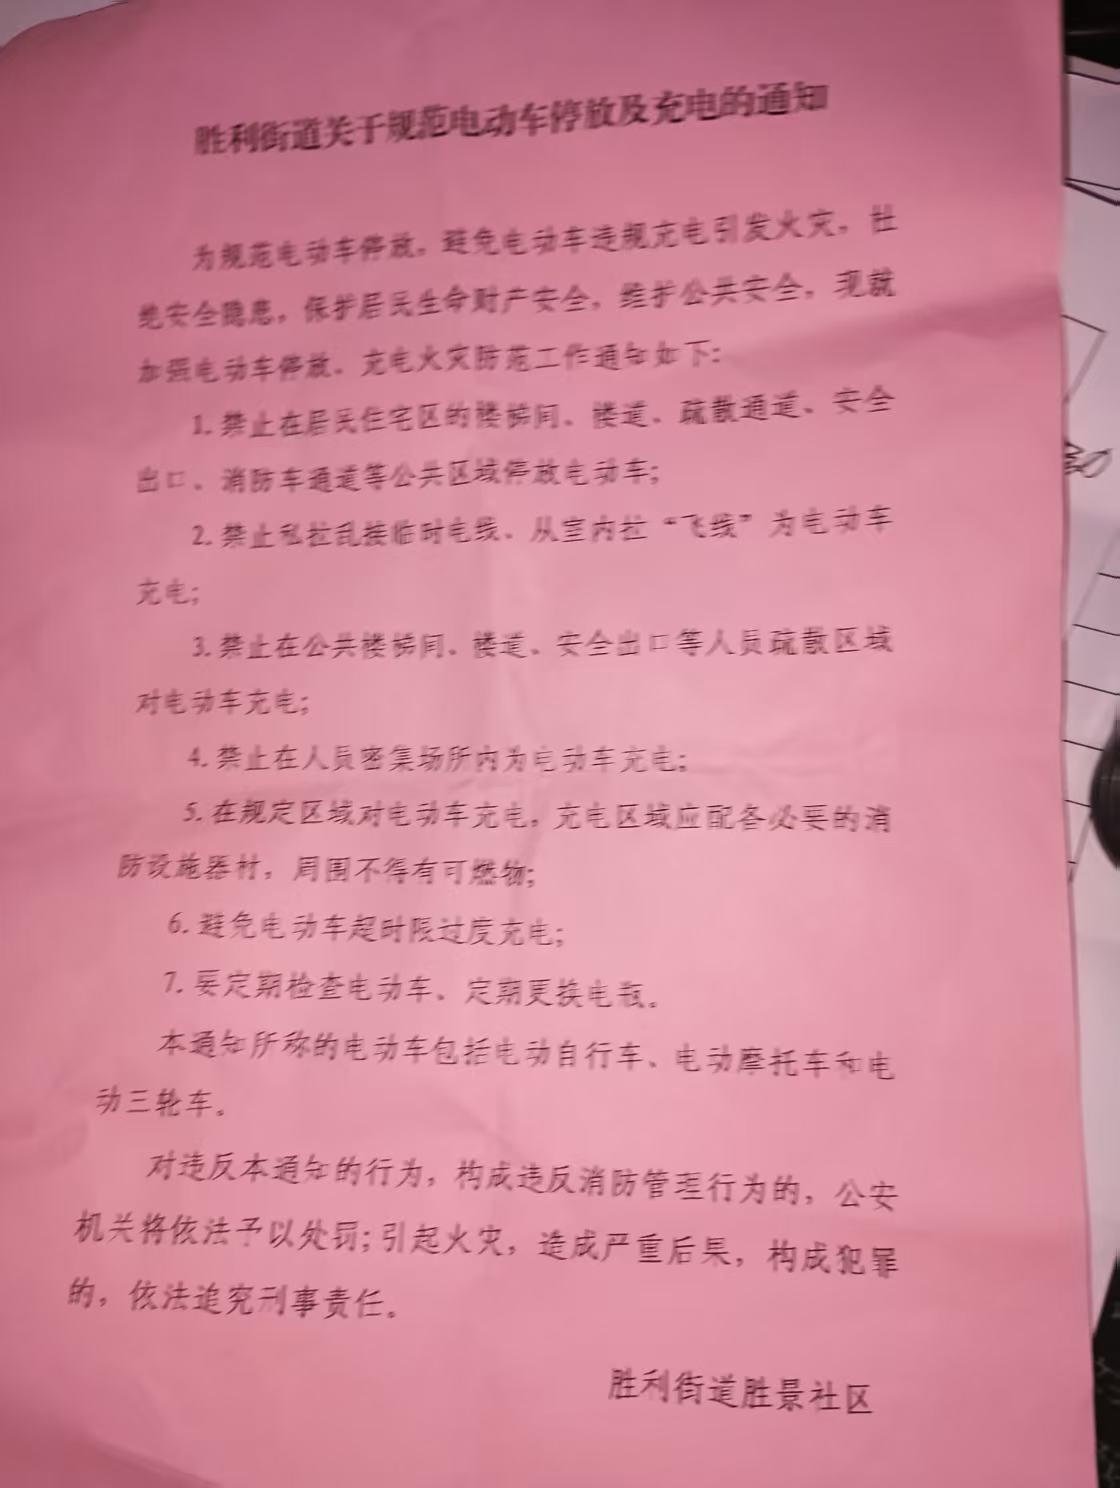 胜利街道关于规范电动车停放及充电的通知
为规范电动车停放，避免电动车违规充电引发火灾，杜
绝安全隐患，保护居民生命财产安全，维护公共安全，现就
加强电动车停放、充电火灾防范工作通知如下：
1.禁止在居民住宅区的楼梯间、楼道、疏散通道、安全
出口、消防车通道等公共区域停放电动车；
2.禁止私拉乱接临时电线、从室内拉“飞线”为电动车
充电；
3.禁止在公共楼梯间、楼道、安全出口等人员疏散区域
对电动车充电；
4.禁止在人员密集场所内为电动车充电；
5.在规定区域对电动车充电，充电区域应配备必要的消
防设施器材，周围不得有可燃物；
6.避免电动车超时限过度充电；
7.要定期检查电动车、定期更换电瓶。
本通知所称的电动车包括电动自行车、电动摩托车和电
动三轮车。
对违反本通知的行为，构成违反消防管理行为的，公安
机关将依法予以处罚；引起火灾，造成严重后果，构成犯罪
的，依法追究刑事责任。
胜利街道胜景社区